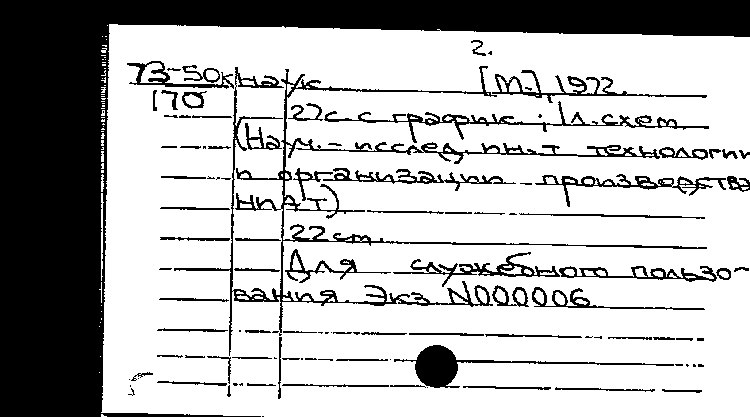 2.
73-50к наук. [М.], 1972.
170
27с. с график.; 1л. схем.
(Науч.-исслед. ин-т технологии
и организации производства
НИАТ).
22 cm.
Для служебного пользо-
вания. Экз N000006